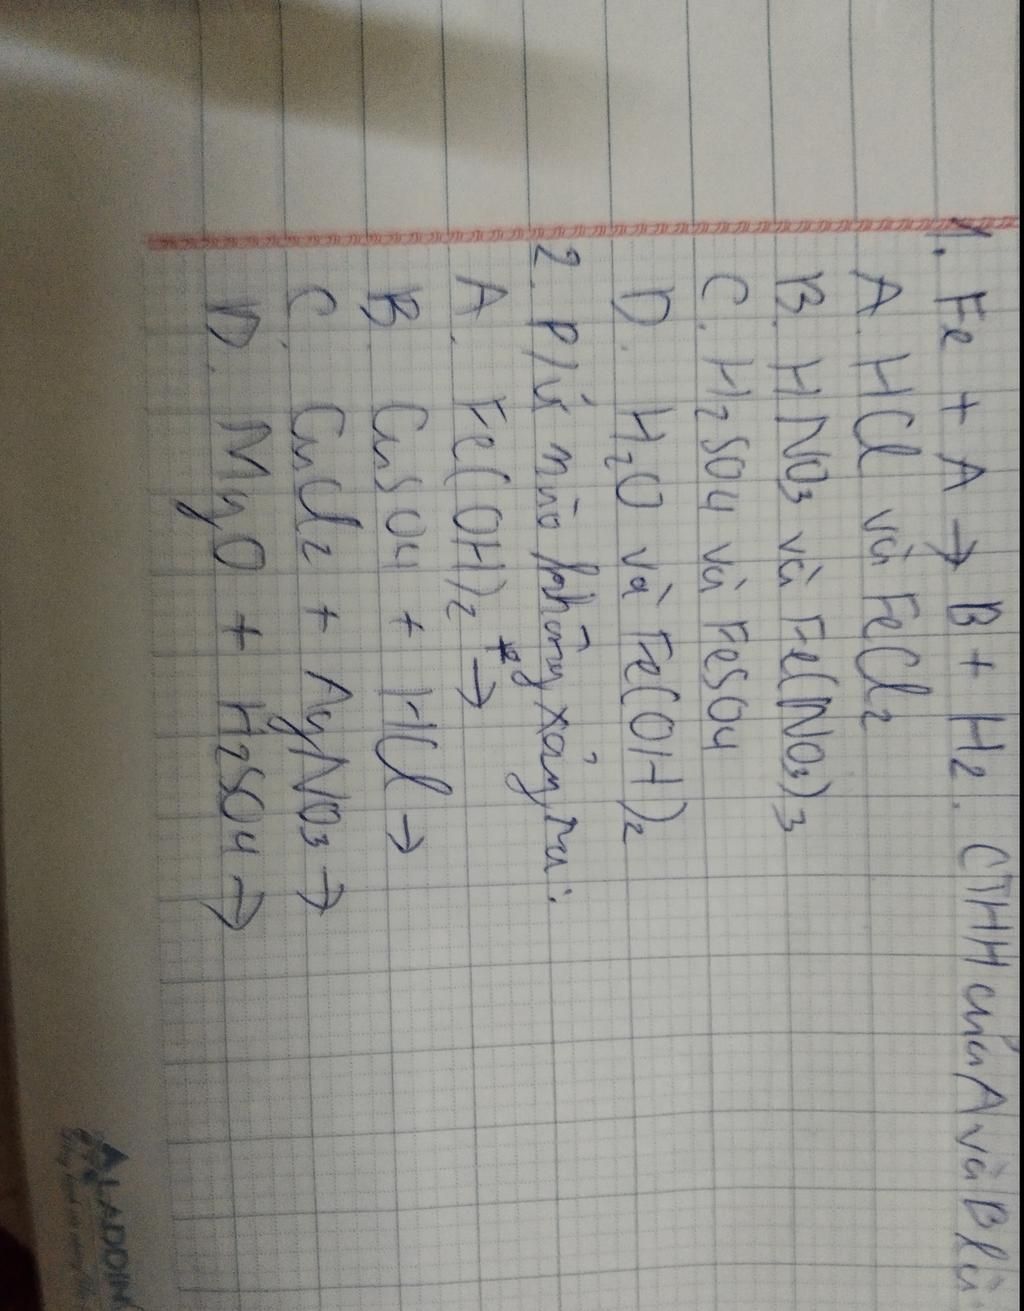 1. Fe + A → B + H2. CTHH của A và B là
A. HCl và FeCl2
B. HNO3 và Fe(NO3)3
C. H2SO4 và FeSO4
D. H2O và Fe(OH)2
2. P/ứ nào không xảy ra:
A. Fe(OH)2 →
B. CuSO4 + HCl →
C. CuCl2 + AgNO3 →
D. MgO + H2SO4 →
ALADDIN